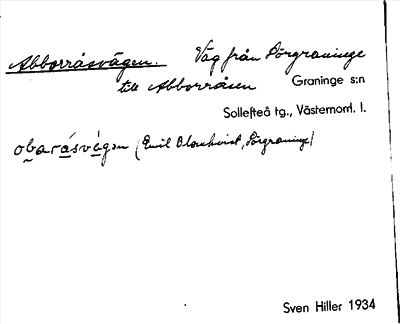 Abborråsvägen. Väg från Sörgraninge
till Abborråsen Graninge s:n
Sollefteå tg., Västernorrl. l.
obarásvágen (Emil Blomkvist, Sörgraninge)
Sven Hiller 1934